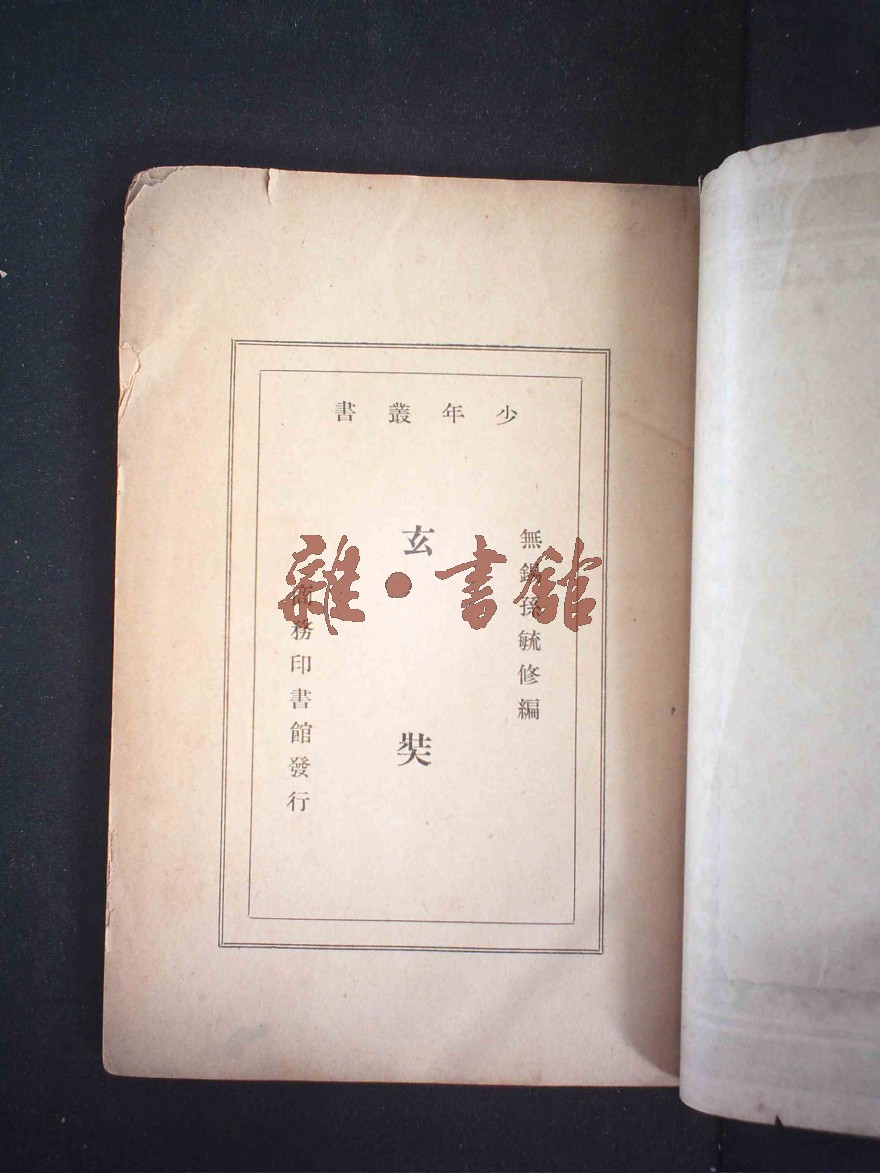 少年叢書
無錫孫毓修編
玄奘
商務印書館發行
雜·書館